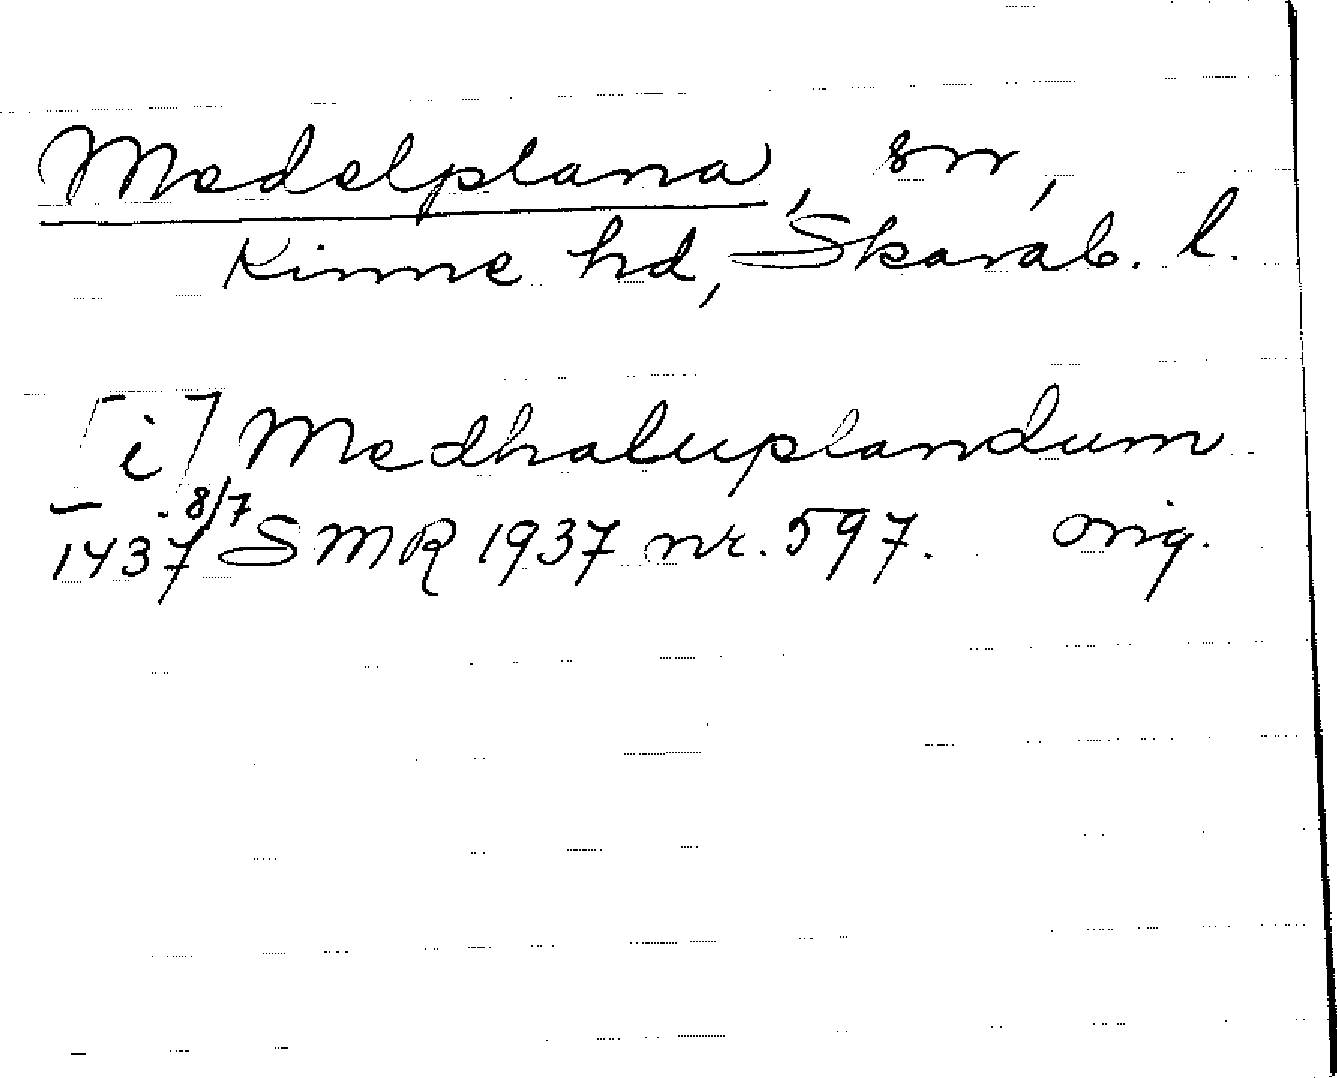 Medelplana, sn,
Kinne hd, Skarab. l.
[i] Medhaluplandum
1437 8/7 SMR 1937 nr. 597. orig.